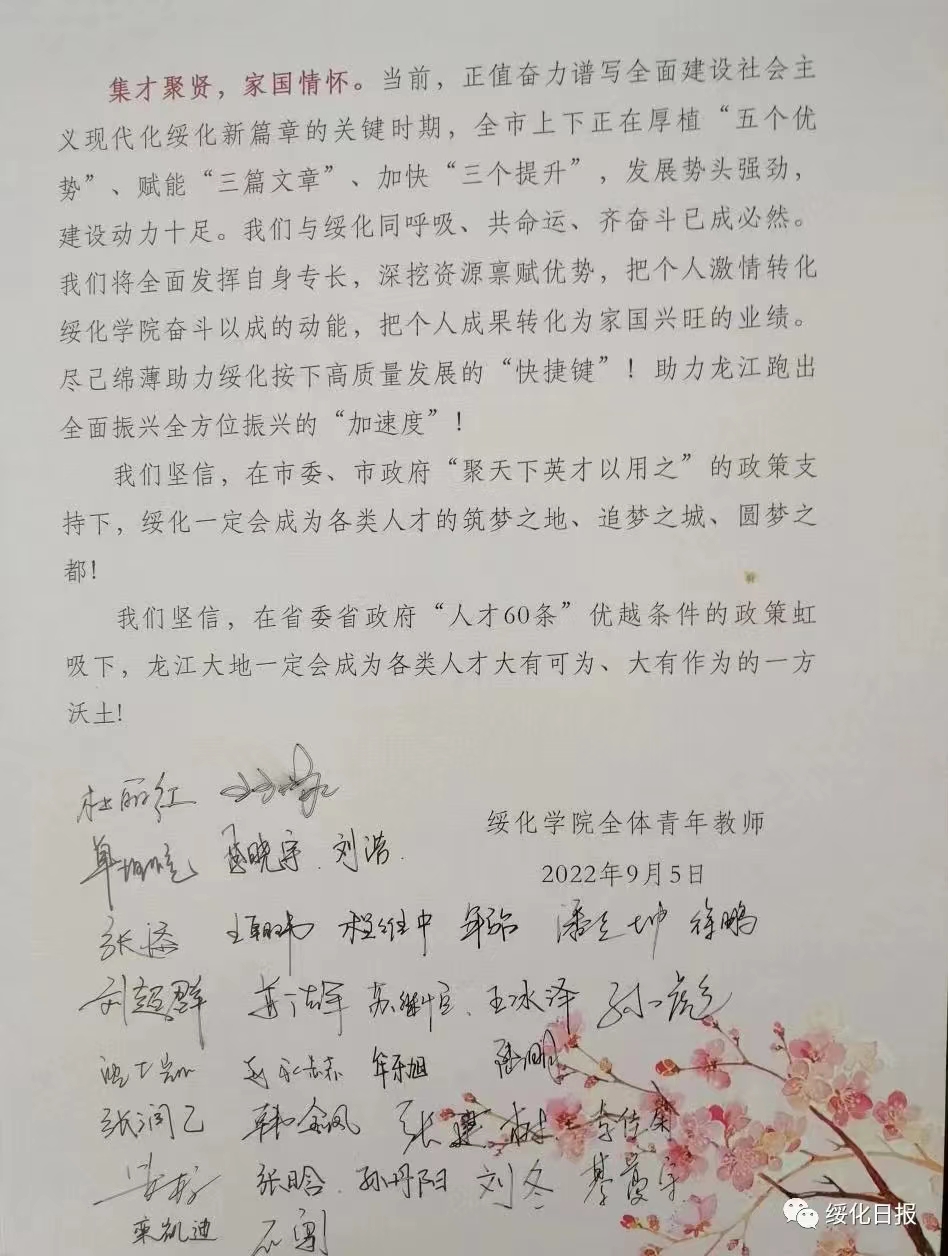 集才聚贤，家国情怀。当前，正值奋力谱写全面建设社会主
义现代化绥化新篇章的关键时期，全市上下正在厚植“五个优
势”、赋能“三篇文章”、加快“三个提升”，发展势头强劲，
建设动力十足。我们与绥化同呼吸、共命运、齐奋斗已成必然。
我们将全面发挥自身专长，深挖资源禀赋优势，把个人激情转化
绥化学院奋斗以成的动能，把个人成果转化为家国兴旺的业绩。
尽己绵薄助力绥化按下高质量发展的“快捷键”！助力龙江跑出
全面振兴全方位振兴的“加速度”！
我们坚信，在市委、市政府“聚天下英才以用之”的政策支
持下，绥化一定会成为各类人才的筑梦之地、追梦之城、圆梦之
都！
我们坚信，在省委省政府“人才60条”优越条件的政策虹
吸下，龙江大地一定会成为各类人才大有可为、大有作为的一方
沃土!
绥化学院全体青年教师
2022年9月5日
杜丽红
刘浩
程维中 徐鹏
刘超群 王冰泽
张润乙 韩金凤 张建树
张晗 孙丹阳 刘冬
栾凯迪 石勇
绥化日报